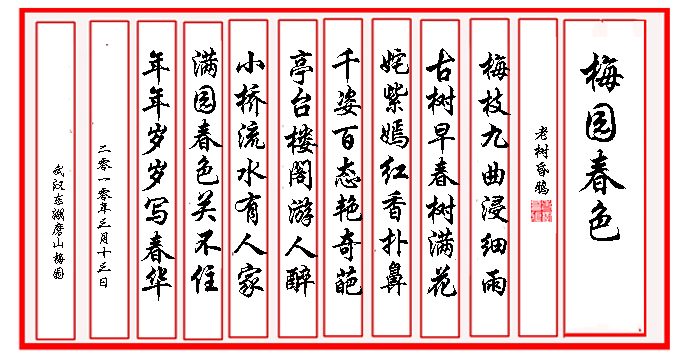 梅园春色
老树昏鸦
梅枝九曲浸细雨
古树早春树满花
姹紫嫣红香扑鼻
千姿百态艳奇葩
亭台楼阁游人醉
小桥流水有人家
满园春色关不住
年年岁岁写春华
二零一零年三月十三日
武汉东湖磨山梅园